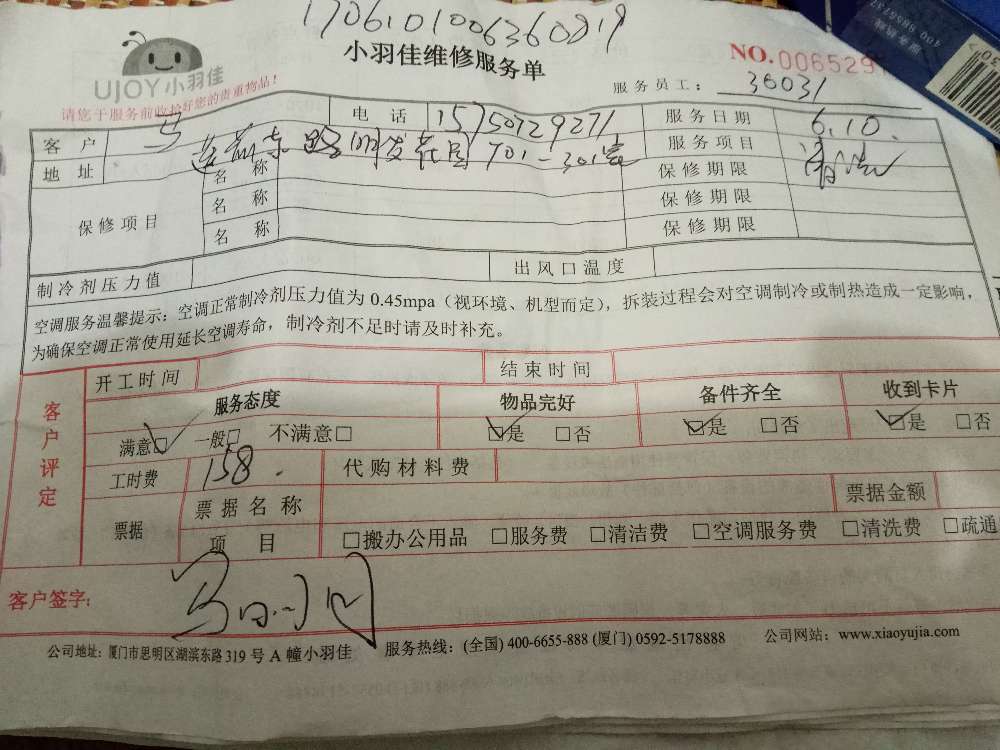 1706101006360819
UJOY小羽佳
小羽佳维修服务单
NO.006529
请您于服务前收拾好您的贵重物品!
服务员工: 36031
客户 马 电话 15750729271 服务日期 6.10.
地址 莲前东路 发花园 701-301室 服务项目 清洗
保修项目
名称 保修期限
名称 保修期限
名称 保修期限
制冷剂压力值 出风口温度
空调服务温馨提示:空调正常制冷剂压力值为 0.45mpa(视环境、机型而定),拆装过程会对空调制冷或制热造成一定影响,
为确保空调正常使用延长空调寿命,制冷剂不足时请及时补充。
客户评定
开工时间 结束时间
服务态度 物品完好 备件齐全 收到卡片
满意☑ 一般□ 不满意□ ☑是 □否 ☑是 □否 ☑是 □否
工时费 158. 代购材料费
票据 票据名称 票据金额
项目 □搬办公用品 □服务费 □清洁费 □空调服务费 □清洗费 □疏通
客户签字: 马
公司地址:厦门市思明区湖滨东路 319 号 A 幢小羽佳 服务热线:(全国) 400-6655-888 (厦门) 0592-5178888 公司网站:www.xiaoyujia.com